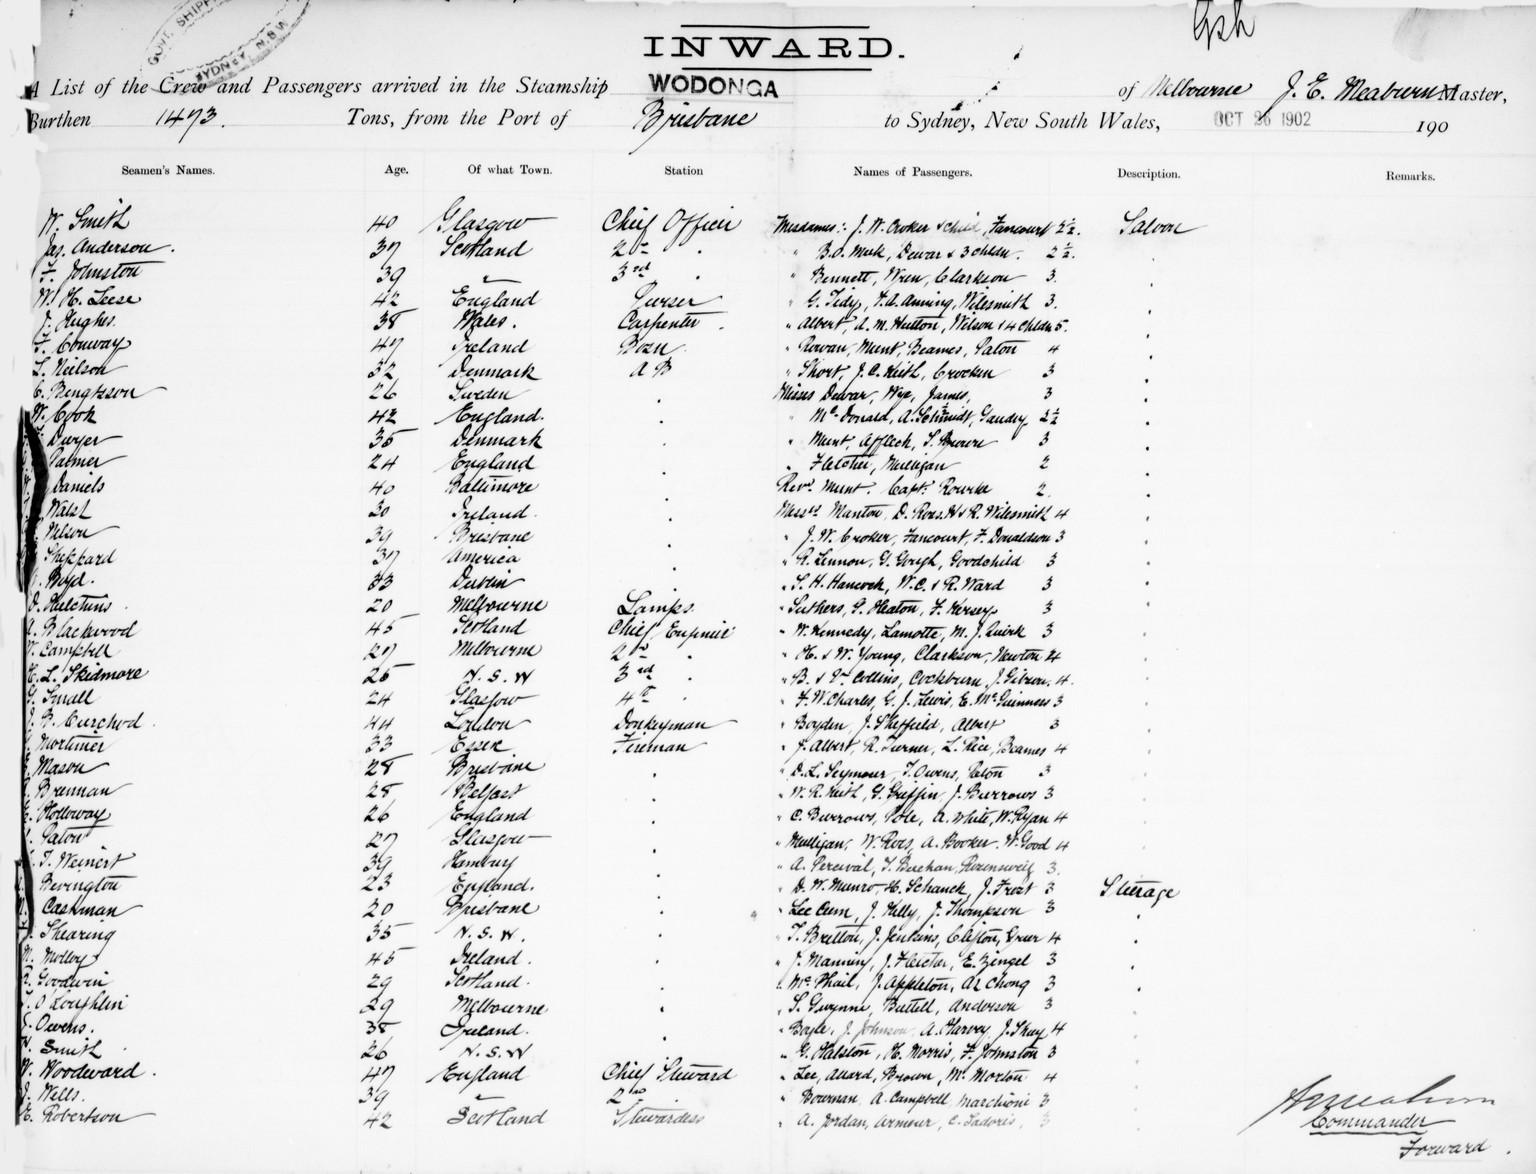 GOVT SHIPP
SYDNEY N.S.W
Gsh
INWARD.
A List of the Crew and Passengers arrived in the Steamship WODONGA of Melbourne J. E. Meaburn Master,
Burthen 1473. Tons, from the Port of Brisbane to Sydney, New South Wales, OCT 26 1902 190
Seamen's Names. Age. Of what Town. Station Names of Passengers. Description. Remarks.
W. Smith 40 Glasgow Chief Officer Mesdames: J. W. Croker & child, Fancourt 2½. Saloon
Jas. Anderson. 37 Scotland 2nd " B.O. Meek, Dewar & 3 chldn. 2½.
F. Johnston 39 " 3rd " Bennett, Wren, Clarkson 3.
W. H. Leese 42 England Purser " G. Tidy, Anning, Wilesmith 3.
J. Hughes. 38 Wales. Carpenter. " Albert, A. M. Hutton, Wilson & 4 chldn 5.
F. Conway 47 Ireland Bozn. " Rowan, Munt, Beames, Paton 4
L. Neilson 32 Denmark A B " Short, J. C. Keith, Crocker 3
C. Bengtsson 26 Sweden Misses Dewar, Wye, James, 3
W. Cook 42 England. " McDonald, A. Schmidt, Gaudry 2½
Dwyer 35 Denmark " Munt, Affleck, S. Brown 3
Palmer 24 England " Fletcher, Mulligan 2
Daniels 40 Baltimore Revd. Munt. Capt. Rourke 2.
Walsh 30 Ireland. Messrs Manton, D. Ross. H & R. Wilesmith 4
Nelson 39 Brisbane " J. W. Croker, Fancourt, F. Donaldson 3
Sheppard 37 America " R. Lennon, G. Gough, Goodchild 3
Boyd. 33 Dublin " S. H. Hancock, W. C. & R. Ward 3
D. Hutchins. 20 Melbourne Lamps. " Suthers, G. Heaton, F. Hersey 3
A. Blackwood 45 Scotland Chief Engineer " W. Kennedy, Lamotte, M. J. Quirk 3
Campbell 27 Melbourne 2nd " H. & W. Young, Clarkson, Newton 4
H. L. Skidmore 25 N. S. W 3rd " B. & Collins, Cockburn, J. Gibson. 4.
G. Small 24 Glasgow 4th " F. W. Charles, G. J. Lewis, E. McGuinness 3
J. B. Curchod. 44 London Donkeyman " Boyden, J. Sheffield, Albert 3
Mortimer 33 Essex Fireman " J. Albert, R. Turner, L. Rice, Beames 4
Mason 28 Brisbane " D. L. Seymour, T. Owens, Paton 3
Brennan 28 Belfast " W. R. Keith, G. Griffin, J. Burrows 3
E. Holloway 26 England " C. Burrows, Pole, A. White, W. Ryan 4
Paton 27 Glasgow " Mulligan, W. Ross, A. Booker. W. Good 4
T. Weinert 39 Hamburg " A. Percival, T. Buchan, Rosensweig 3.
Bevington 23 England. " D. W. Munro, H. Schauck, J. Frost 3 Steerage
Cashman 20 Brisbane " Lee Cum, J. Kelly, J. Thompson 3
Shearing 35 N. S. W. " T. Britton, J. Jenkins, Clifton, Greer 4
M. Molloy 45 Ireland. " J. Manning, J. Fletcher, E. Zingel 3
Goodwin 29 Scotland. " McPhail, J. Appleton, Ah Chong 3
O'Loughlin 29 Melbourne " S. Gwynne, Buttell, Anderson 3
Owens. 38 Ireland. " Boyle, J. Johnson, A. Harvey, J. Shay 4
Smith 26 N. S. W " G. Halston, H. Morris, F. Johnston 3
W. Woodward. 47 England Chief Steward " Lee, Allard, Brown, Mc. Morton 4
J. Wells. 39 " 2nd " Bowman, A. Campbell, Marchioni 3
E. Robertson 42 Scotland Stewardess " A. Jordan, Armour, C. Sadoris, 3
Commander
Forward.